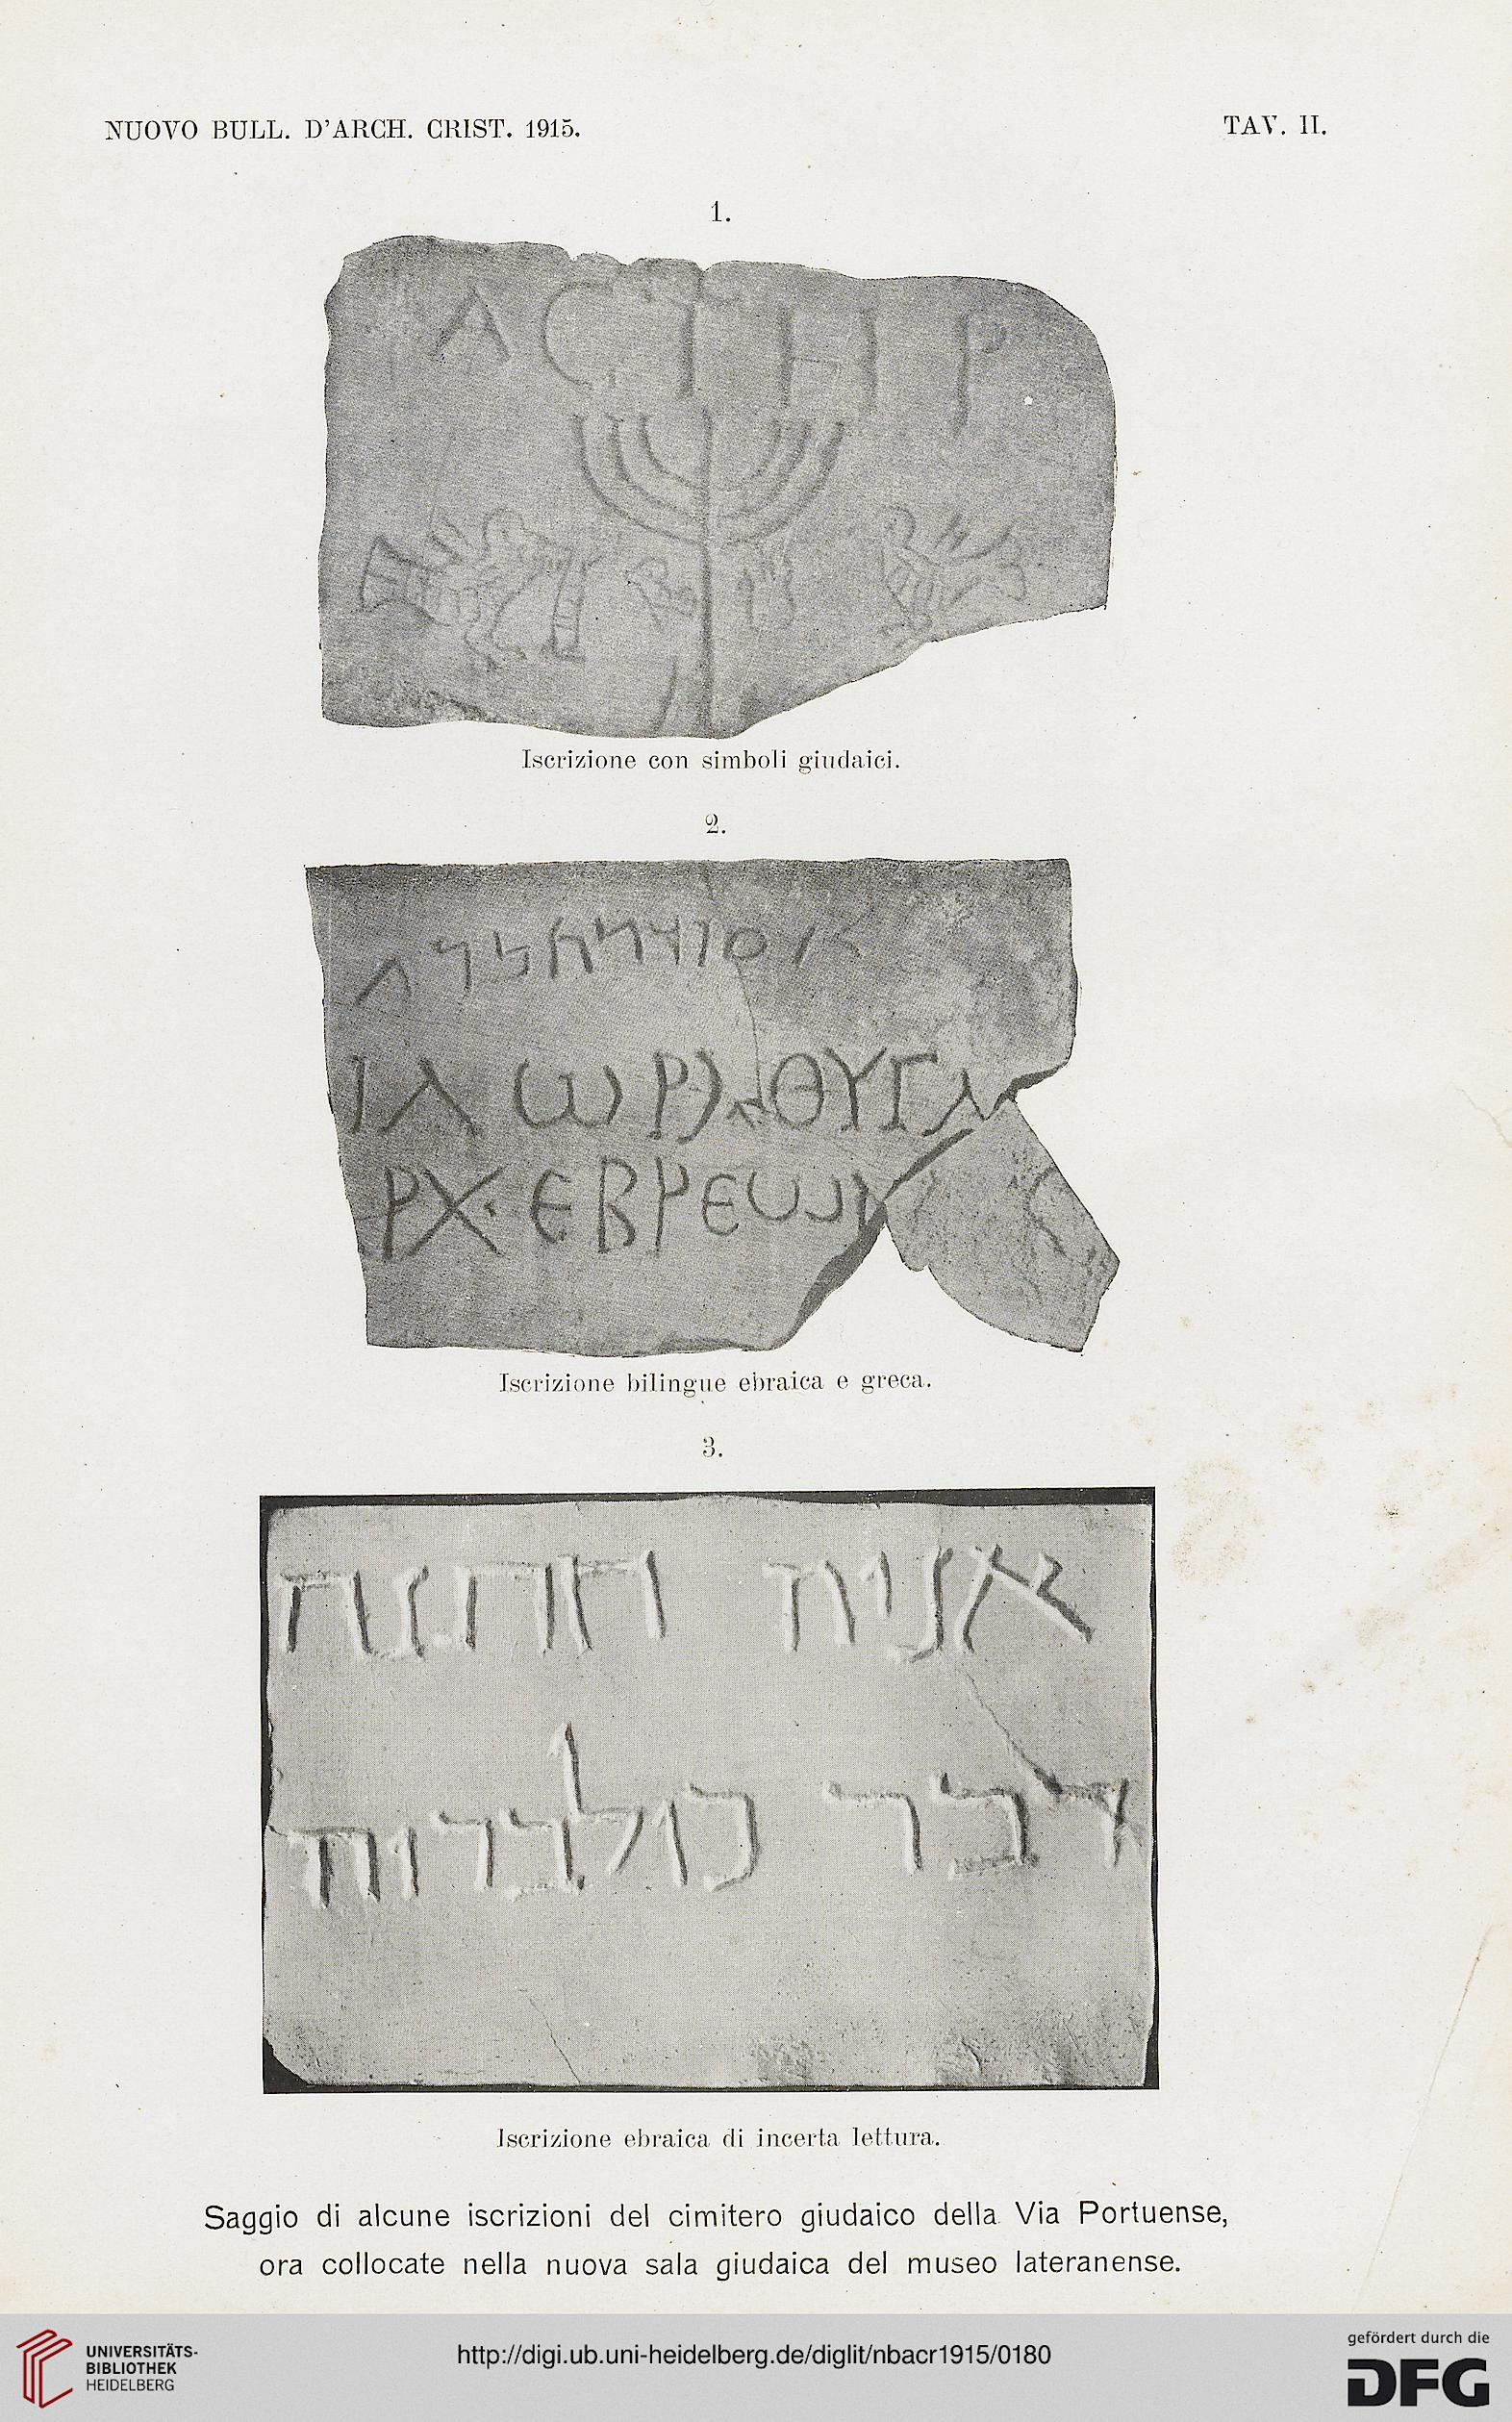 NUOVO BULL. D'ARCH. CRIST. 1915.
TAV. II.
1.
ΑϹΤΗΡ
Iscrizione con simboli giudaici.
2.
ΕΒΡΕΩΝ
Iscrizione bilingue ebraica e greca.
3.
אניה חתנה
דבר
Iscrizione ebraica di incerta lettura.
Saggio di alcune iscrizioni del cimitero giudaico della Via Portuense,
ora collocate nella nuova sala giudaica del museo lateranense.
UNIVERSITÄTS-
BIBLIOTHEK
HEIDELBERG
http://digi.ub.uni-heidelberg.de/diglit/nbacr1915/0180
gefördert durch die
DFG